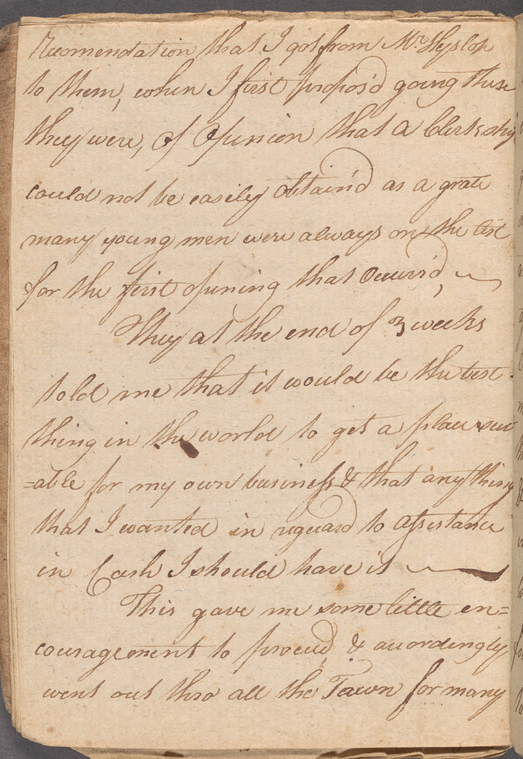 Recomendation that I got from Mr. Hyslop
to them, when I first propos'd going there
they were, of Opunion that a Clerkship
could not be easily Obtain'd as a grate
many young men were always on the list
for the first opening that Occur'd,
They at the end of 3 weeks
told me that it would be the best
thing in the world to get a place suit
=able for my own business & that any thing
that I wanted in reguard to Assistance
in Cash I should have it
This gave me some little en=
couragement to proceed, & accordingly
went out thro all the Town for many